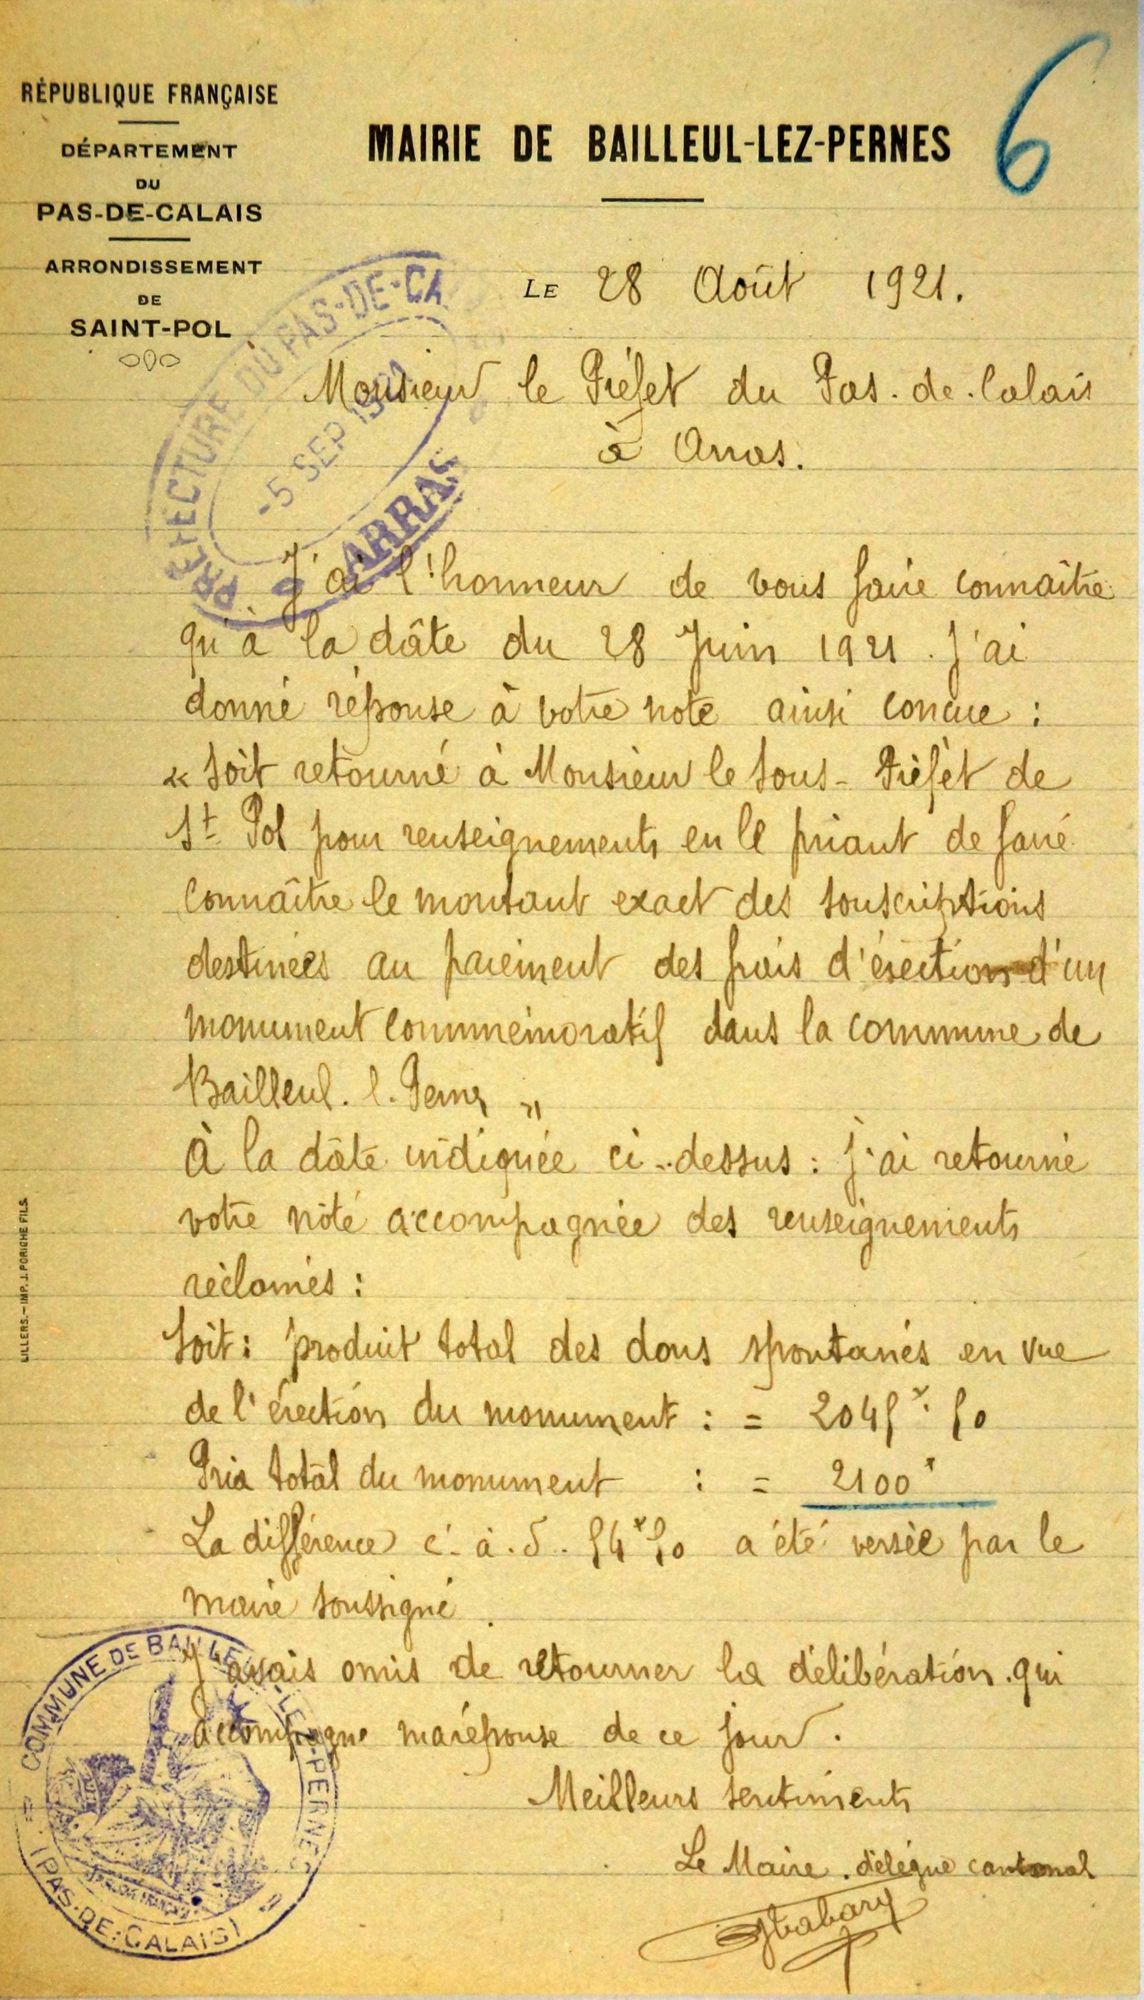 RÉPUBLIQUE FRANÇAISE
DÉPARTEMENT
DU
PAS-DE-CALAIS
ARRONDISSEMENT
DE
SAINT-POL
MAIRIE DE BAILLEUL-LEZ-PERNES
6
LE 28 Août 1921.
PRÉFECTURE DU PAS-DE-CA
-5 SEP 1921
ARRAS
Monsieur le Préfet du Pas.de.Calais
à Arras.
J'ai l'honneur de vous faire connaître
qu'à la dâte du 28 Juin 1921. J'ai
donné réponse à votre note ainsi concue :
« Soit retourné à Monsieur le Sous-Préfèt de
St Pol pour renseignements en le priant de faire
connaître le montant exact des souscriptions
destinées au paiement des frais d'érection d'un
monument commémoratif dans la commune de
Bailleul. l. Pernes "
À la dâte indiquée ci-dessus : j'ai retourné
votre note accompagnée des renseignements
réclamés :
Soit : produit total des dons spontanés en vue
de l'érection du monument : = 2045 f. 50
Prix total du monument : = 2100 f
La différence c.à.d. 54 f 50 a été versée par le
maire soussigné.
J'avais omis de retourner la délibération qui
accompagne ma réponse de ce jour.
Meilleurs sentiments
Le Maire. délégué cantonal
Tabary
COMMUNE DE BAILLEUL-LEZ-PERNES
(PAS-DE-CALAIS)
LILLERS.—IMP. J. PORICHE FILS